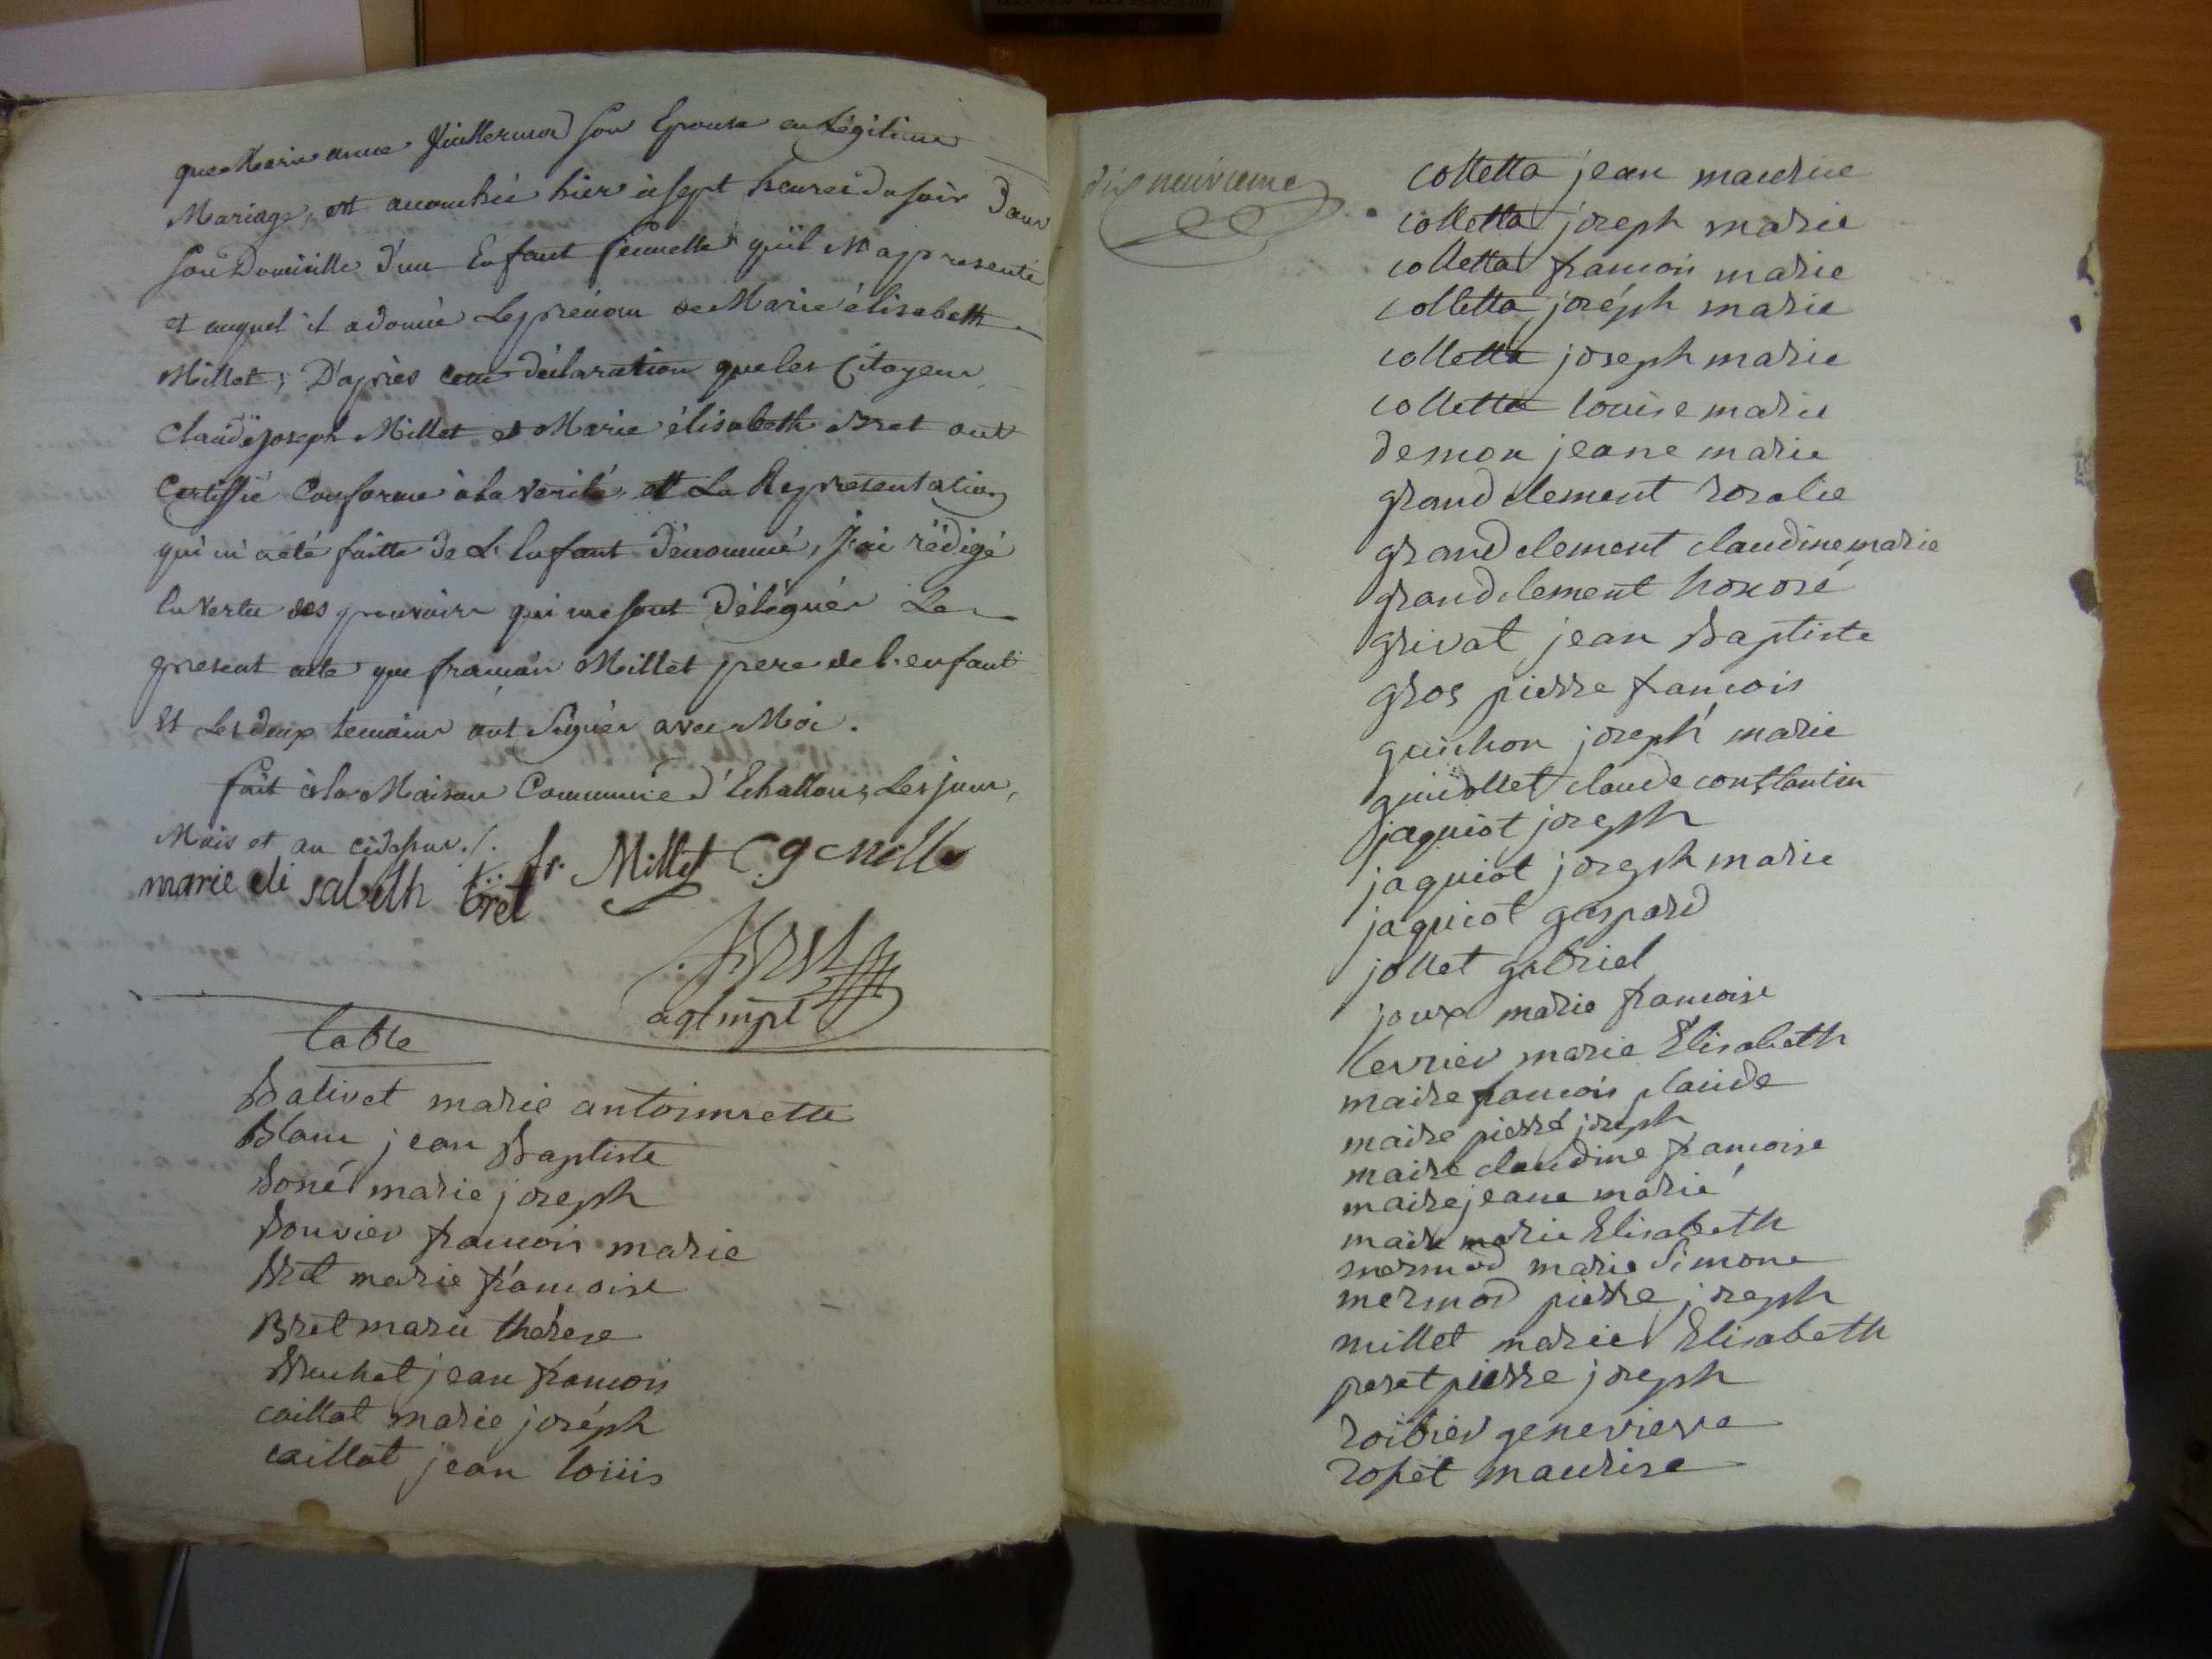 que Marie anne Guillermod son Epouse en Légitime
Mariage, est accouchée hier à sept heures du soir Dans
son Domicille d'un Enfant femelle qu'il m'a presenté
et auquel il a donné Les prénom de Marie élisabeth
Millet; D'après cette déclaration que les Citoyens
Claude joseph Millet et Marie élisabeth Bret ont
Certiffié Conforme à la verité, et La Representation
qui m'a été faitte de L'Enfant dénommé, J'ai rédigé
En Vertu des pouvoirs qui me sont Délégués Le
present acte que francois Millet pere de l'enfant
Et Les deux temoins ont Signés avec Moi.
fait à la Maison Commune d'Echallon, Les jour,
Mois et an cidessus ./.
marie eli sabeth bret fr. Millet C g Mille
Bret
agt mpl
table
Balivet marie antoinnette
Blanc jean Baptiste
Boné marie joseph
Bouvier francois marie
Bret marie francoise
Bret marie thérese
Bruchet jean francois
caillat marie joséph
caillat jean louis
dix neuvieme
colletta jean maurice
colletta joseph marie
colletta francois marie
colletta joséph marie
colletta joseph marie
colletta louise marie
demon jeane marie
grand clement rosalie
grand clement claudine marie
grand clement honoré
grivat jean Baptiste
gros pierre francois
guichon joseph marie
guidollet claude constantin
jaquiot joseph
jaquiot joseph marie
jaquiot gaspard
jollet gabriel
joux marie francoise
levrier marie Elisabeth
maire francois claude
maire pierre joseph
maire claudine francoise
maire jeane marie
maire marie Elisabeth
mermod marie Simone
mermod pierre joseph
millet marie Elisabeth
peret pierre joseph
roibier genevieve
rosset maurise